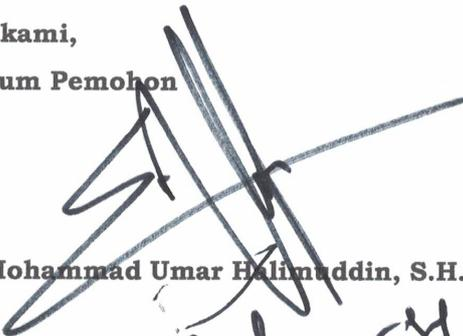 kami,
um Pemohon
Mohammad Umar Halimuddin, S.H.